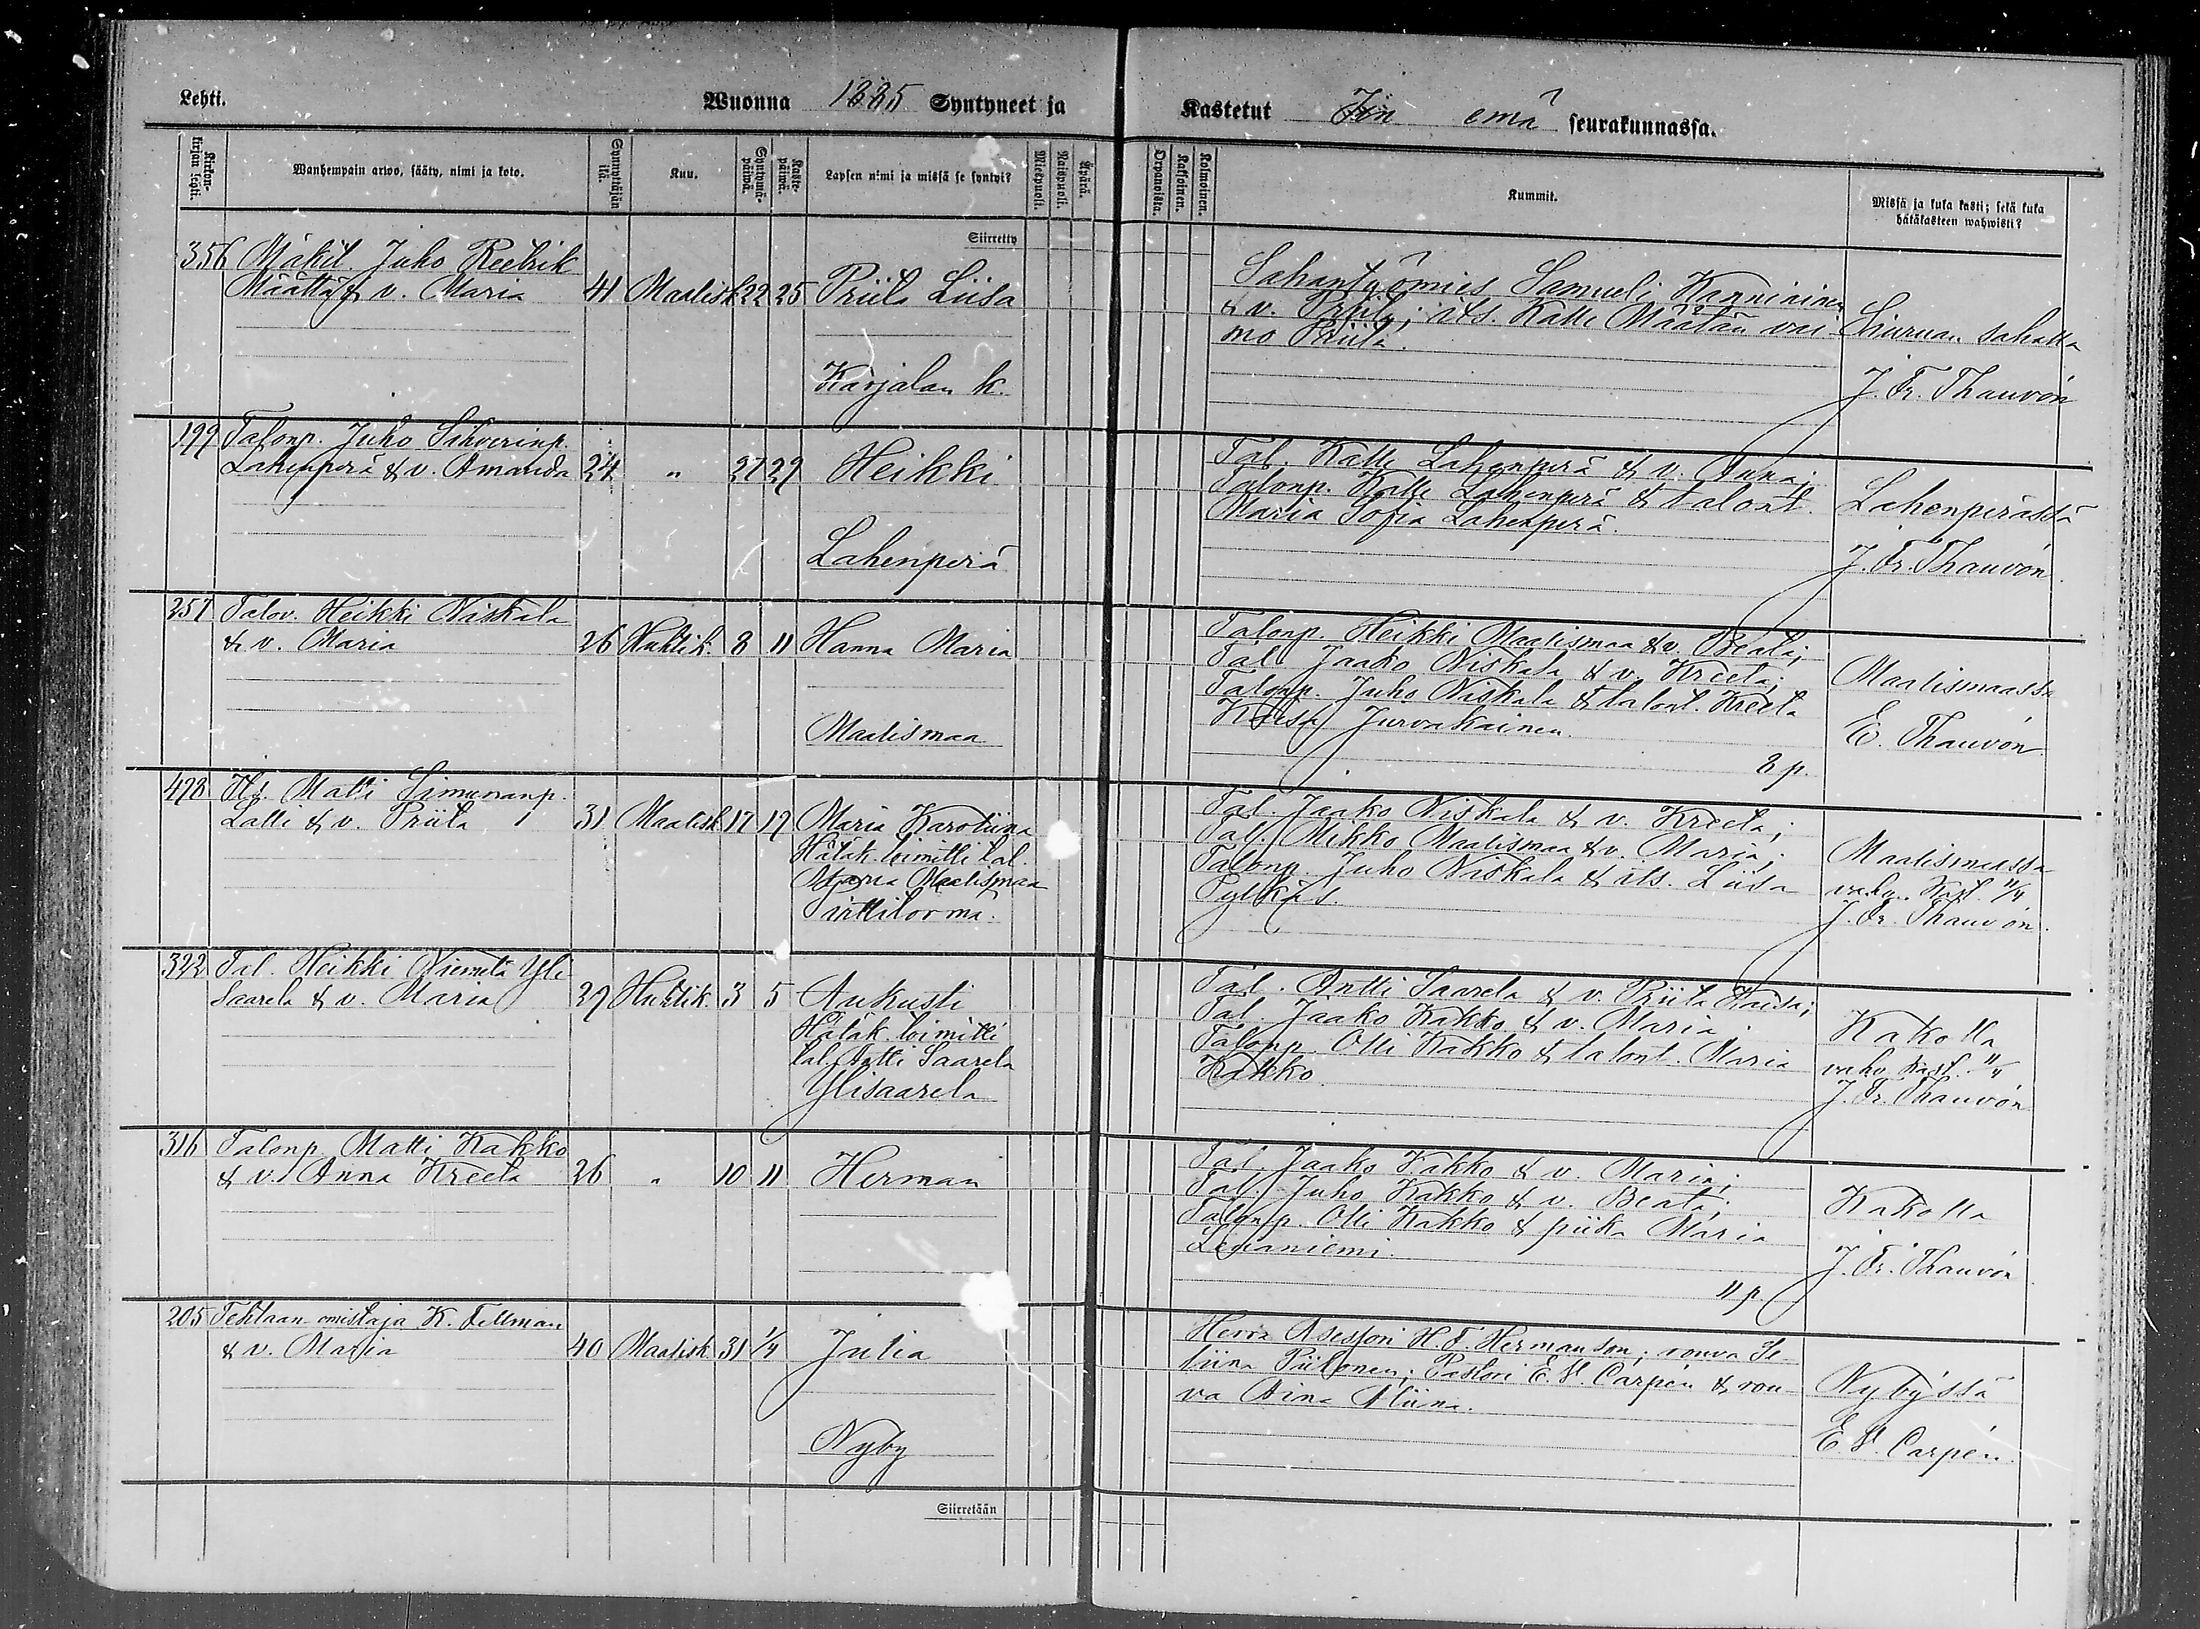 Lehti.
Wuonna 1885 Syntyneet ja
Kastetut Iin emä seurakunnassa.
Kirkonkirjan lehti.
Wanhempain arwo, sääty, nimi ja koto.
Synnyttäjän ikä.
Kuu.
Syntymäpäiwä.
Kastepäiwä.
Lapsen nimi ja missä se syntyi?
Miespuoli.
Naispuoli.
Äpärä.
Orpanoista.
Kaksoinen.
Kolmoinen.
Kummit.
Missä ja kuka kasti; sekä kuka
hätäkasteen wahwisti?
Siirretty
356 Mäkit. Juho Reetrik
Määttä & v. Maria 41 Maalisk. 22 25 Priita Liisa
Karjalan k.
Sahantyömies Samueli Kanninen
& v. Priita; its. Kalle Määtän vai
mo Priita.
Liurun sahalla
J. Fr. Thauvón
199 Talonp. Juho Sihverinp.
Lahenperä & v. Amanda 24 " 27 29 Heikki
Lahenperä
Tal. Kalle Lahenperä & v. Anna;
Talonp. Kalle Lahenperä & talont.
Maria Sofia Lahenperä.
Lahenperässä
J. Fr. Thauvón.
257 Talov. Heikki Niskala
& v. Maria 26 Huhtik. 8 11 Hanna Maria
Maalismaa
Talonp. Heikki Maalismaa & v. Beata;
Tal. Jaako Niskala & v. Kreeta;
Talonp. Juho Niskala & talont. Kreeta
Kaisa Jurvakainen.
2 p.
Maalismaassa
E. Thauvón.
478 Its. Matti Simunanp.
Latti & v. Priita 31 Maalisk. 17 19 Maria Karoliina
Hätäk. toimitti tal.
Maria Maalismaa
Pirttitorma.
Tal. Jaako Niskala & v. Kreeta;
Tal. Mikko Maalismaa & v. Maria;
Talonp. Juho Niskala & its. Liisa
Pylkäs.
Maalismaassa
vahv. kast. 11/4
J. Fr. Thauvón.
322 Tal. Heikki Niemelä Yli
Saarela & v. Maria 39 Huhtik. 3 5 Aukusti
Hätäk. toimitti
tal. Antti Saarela
Ylisaarela
Tal. Antti Saarela & v. Priita Kaisa;
Tal. Jaako Kakko & v. Maria
Talonp. Olli Kakko & talont. Maria
Kakko.
Kakolla
vahv. kast. 11/4
J. Fr. Thauvón
316 Talonp. Matti Kakko
& v. Anna Kreeta 26 " 10 11 Herman
Tal. Jaako Kakko & v. Maria;
Tal. Juho Kakko & v. Beata;
Talonp. Olli Kakko & piika Maria
Liinaniemi.
11 p.
Kakolla
J. Fr. Thauvón
205 Tehtaan omistaja K. Fellman
& v. Maria 40 Maalisk. 31 1/4 Julia
Nyby
Herra Asessori H. F. Hermanson; rouva Se
liina Piiponen; Pastori E. V. Carpén & rou
va Aina Aliina.
Nyby'ssä
E. V. Carpén.
Siirretään